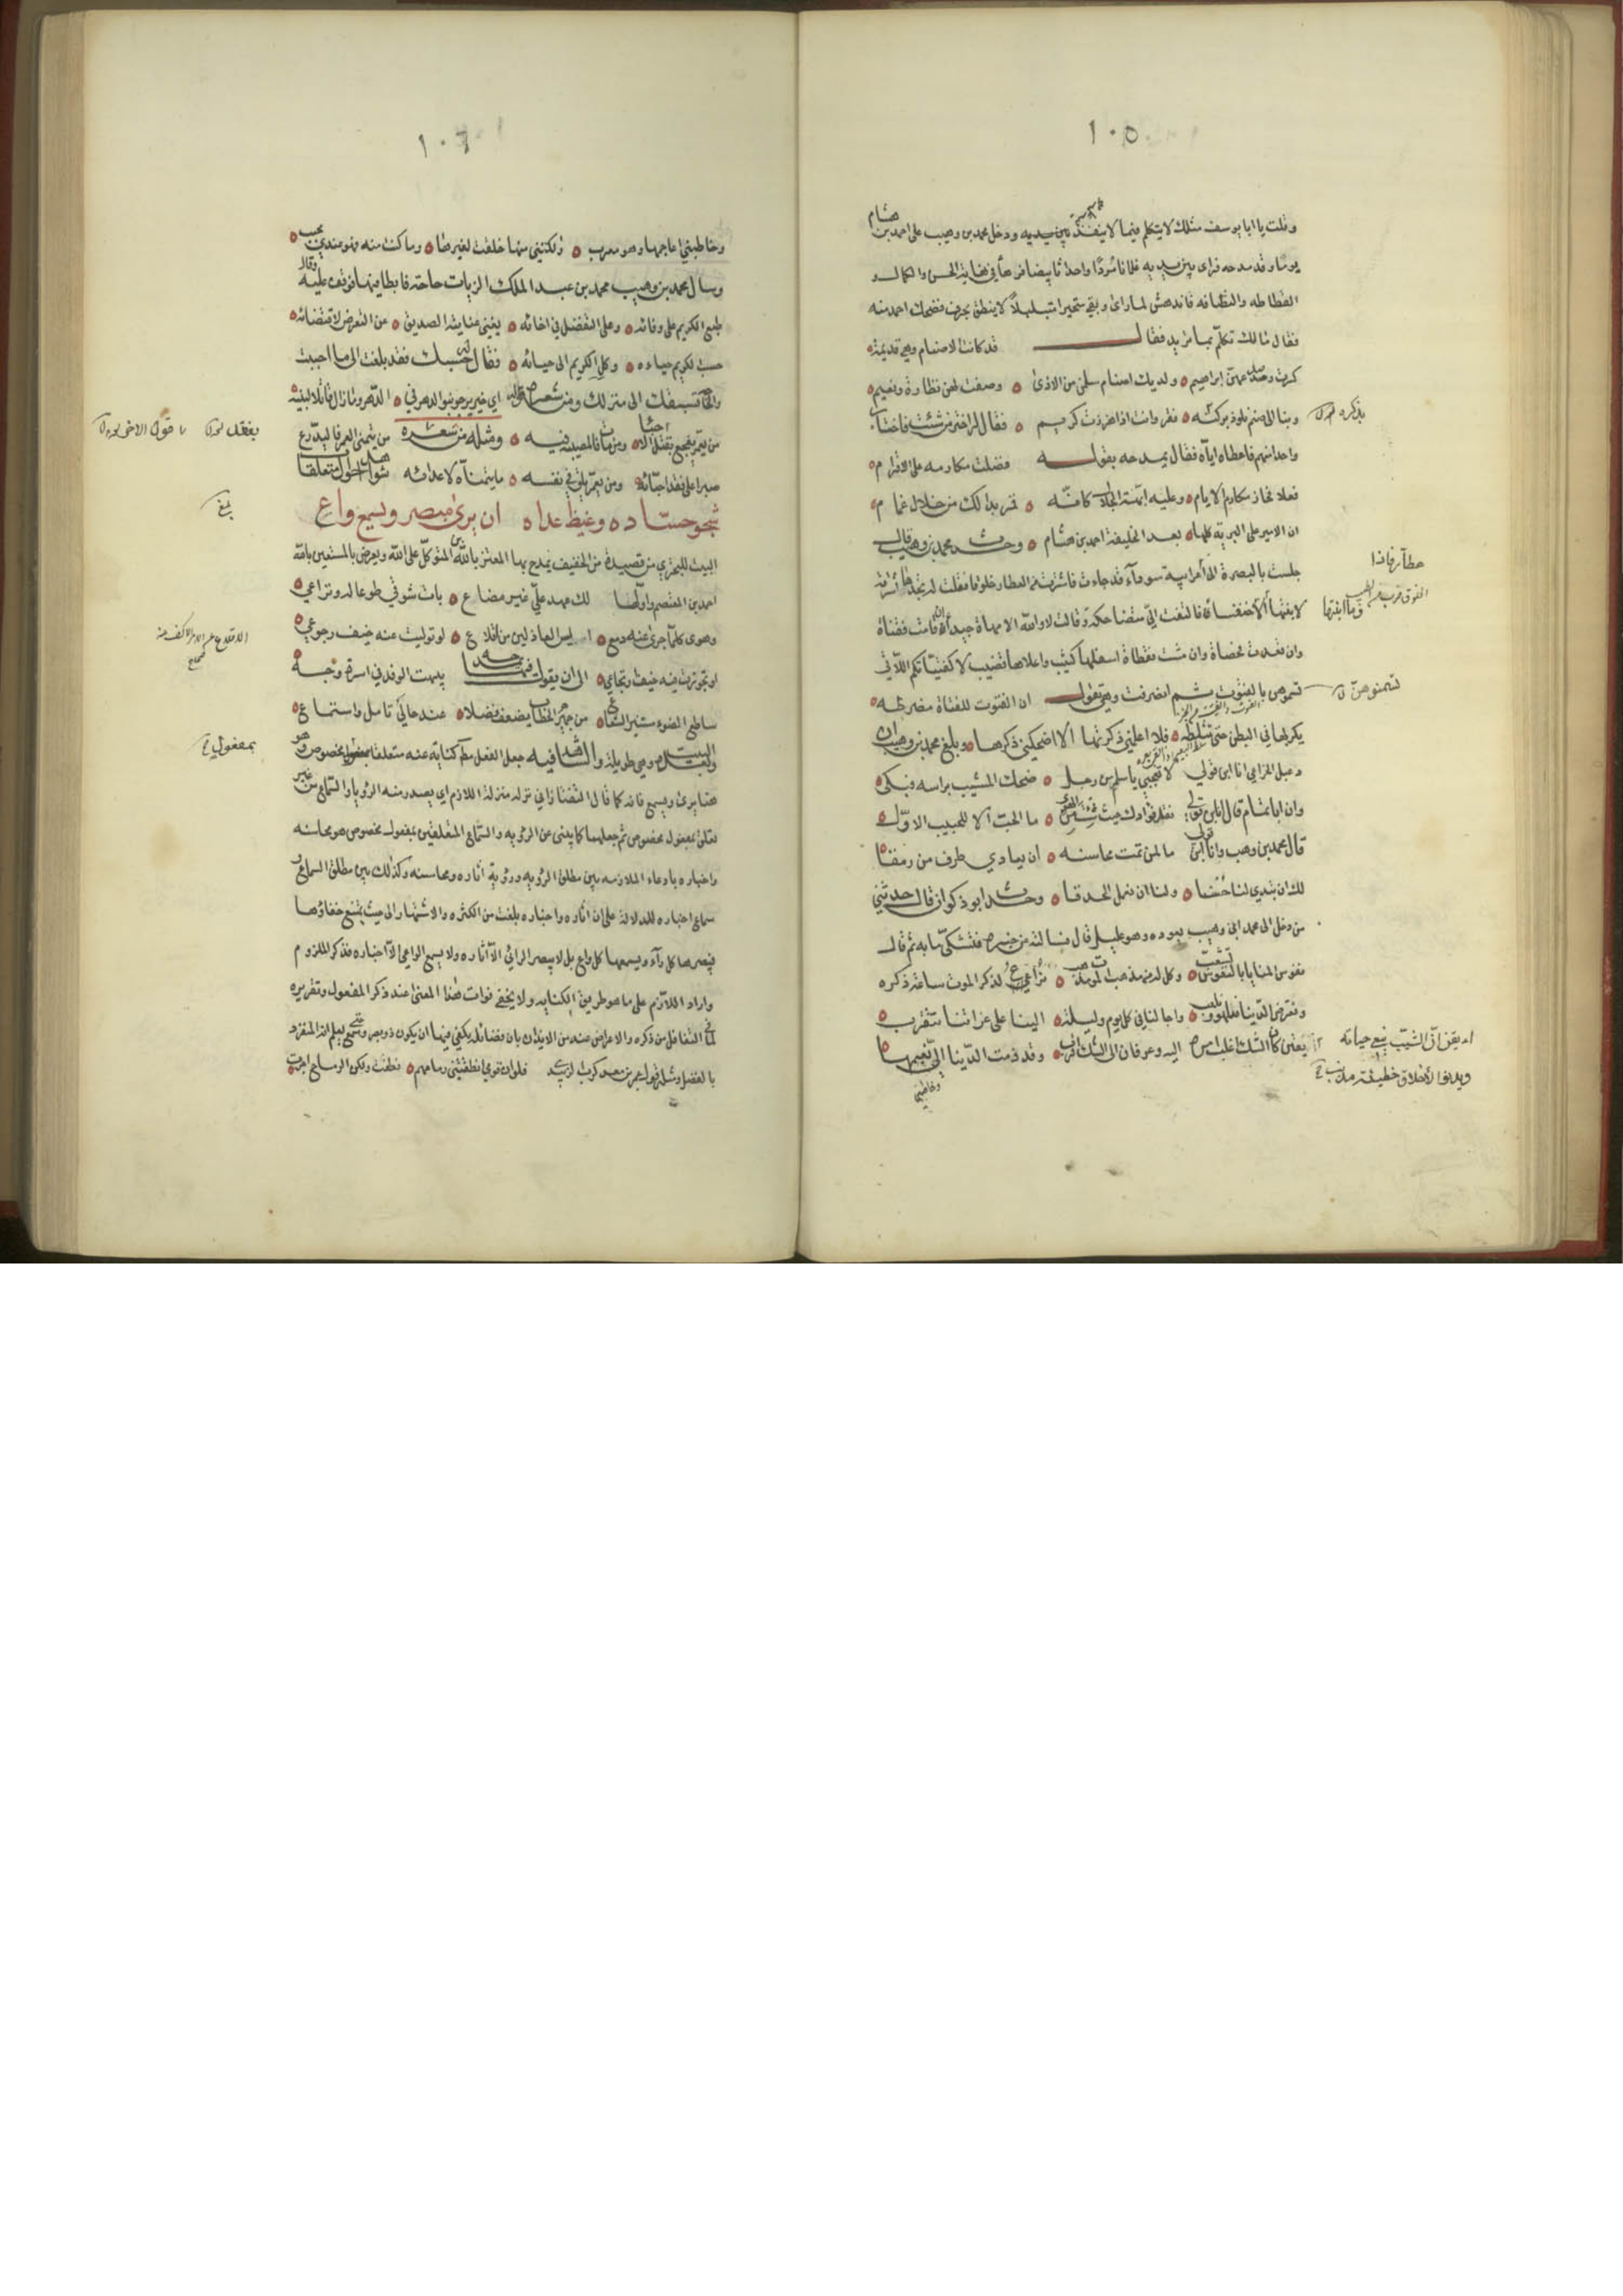 ١٠٥
وقلت يا ابا يوسف مثلك لا يتكلم فيما لا ينفذ بين يديه ودخل محمد بن وهيب على احمد بن هشام
يوما وقد مدحه فراى بين يديه غلمانا مردا واحداثا بيضا فرها في نهاية الحسن والكمال و
النظافه فاندهش لما راى وبقي متحيرا متبلدا لا ينطق بحرف فضحك احمد منه
فقال مالك تكلم بما تريد فقال قد كانت الاصنام وهي قديمة
كسرت وجدعهن ابراهيم ولديك اصنام سلمن من الاذى وصفت لهن نظارة ونعيم
وبنا الى صنم نلوذ بركنه فقر وانت اذا هززت كريم فقال له اختر من شئت فاختار
واحدا منهم فاعطاه اياه فقال يمدحه بقوله فضلت مكارمه على الاقوام
فعلا فحاز مكارم الايام وعليه ابهة الجلال كانه قمر بدا لك من خلال غمام
ان الامير على البرية كلها بعد الخليفة احمد بن هشام وحدث محمد بن وهيب قال
جلست بالبصرة الى عطار فاذا اعرابية سوداء قد جاءت فاشترت من العطار خلوقا فقلت له تجدها اشترته
لابنتها وما ابنتها الا خنفساة فالتفت الي متضاحكة وقالت لا والله الا مهاة جيداء ان قامت فقناة
وان قعدت فحصاة وان مشت فقطاة اسفلها كثيب واعلاها قضيب لا كفتياتكم اللاتي
تسمنوهن بالفتوت ثم انصرفت وهي تقول ان الفتوت للفتاة مضرطه
يكربها في البطن حتى تثلطه فلا اعلمني ذكرتها الا اضحكني ذكرها وبلغ محمد بن وهيب ان
دعبل الخزاعي انا ابن قولي لا تعجبي يا سلم من رجل ضحك المشيب براسه فبكى
وان ابا تمام قال انا ابن قولي نقل فؤادك حيث شئت من الهوى ما الحب الا للحبيب الاول
قال محمد بن وهب وانا ابن قولي ما لمن تمت محاسنه ان يعادي طرف من رمقا
لك ان تبدي لنا حسنا ولنا ان نعمل الحدقا وحدث ابو ذكوان قال حدثني
من دخل الى محمد ابن وهيب يعوده وهو عليل قال فسالته عن خبره فتشكى ما به ثم قال
نفوس المنايا بالنفوس تشعب وكل له من مذهب الموت مذهب نراع لذكر الموت ساعة ذكره
وتعترض الدنيا فنلهو ونلعب واجالنا في كل يوم وليلة الينا على غراتنا تتقرب
يقين كان الشك اغلب امره اليه وعرفان الى الشك ينسب وقد ذمت الدنيا الي نعيمها
وخاطبني
بذكره
عطار فاذا
وما ابنتها
تسمنوهن
ايقن ان الشيب ينعى حياته
١٠٦
وخاطبني اعاجمها وهو معرب ولكنني منها خلقت لغيرها وما كنت منه فهو عندي محبب
وسال محمد بن وهيب محمد بن عبد الملك الزيات حاجة فابطا فيها فوقف عليه وقال
طبع الكريم على وفائه وعلى التفضل في اخائه يغني عنايته الصديق عن التعرض لاقتضائه
حسب الكريم حياءه وكل الكريم الى حيائه فقال له حسبك فقد بلغت الى ما احببت
والحاجة تسبقك الى منزلك ومن شعره قوله اي خير يرجو بنو الدهر في الدهر وما زال قاتلا لبنيه
من يعمر يفجع بفقد الاحبا ومن مات فالمصيبة فيه ومثله من شعره من يتمنى العمر فليدرع
صبرا على فقد احبائه ومن يعمر يلق في نفسه ما يتمناه لاعدائه
شجو حساده وغيظ عداه ان يرى مبصر ويسمع واع
البيت للبحتري من قصيدة من الخفيف يمدح بها المعتز بالله بن المتوكل على الله ويعرض بالمستعين بالله
احمد بن المعتصم واولها لك عهد علي غير مضاع بات شوقي طوعا له ونزاعي
وهوى كلما جرى عنه دمع ايس العاذلين من اقلاع لو توليت عنه خيف رجوعي
او تجوزت فيه خيف وتجاعي الى ان يقول في مدحه فيها يبهت الوفد في اسرة وجه
ساطع الضوء مستنير الشعاع من جهير الخطاب يضعف فضلا عند حالي تامل واستماع
والشاهد فيه جعل الفعل مطلقا كناية عنه متعلقا بمفعول مخصوص وهو
هنا يرى ويسمع فانه كما قال التفتازاني نزله منزلة اللازم اي يصدر منه الرؤيا والسماع من غير
تعلق بمفعول مخصوص ثم جعلهما كنايتين عن الرؤيه والسماع المتعلقين بمفعول مخصوص هو محاسنه
واخباره بادعاء الملازمه بين مطلق الرؤيه ورؤية اثاره ومحاسنه وكذلك بين مطلق السماع و
سماع اخباره للدلالة على ان اثاره واخباره بلغت من الكثره والاشتهار الى حيث يمتنع خفاؤها
فيبصرها كل راء ويسمعها كل واع بل لا يبصر الرائي الا اثاره ولا يسمع الواعي الا اخباره فذكر الملزوم
واراد اللازم على ما هو طريق الكنايه ولا يخفى فوات هذا المعنى عند ذكر المفعول وتقديره
لما في التغافل عن ذكره والاعراض عنه من الايذان بان فضائله يكفي فيها ان يكون ذو بصر وسمع يعلم انه المنفرد
بالفضل ومثله قول عمرو بن معدي كرب الزبيدي فلو ان قومي انطقتني رماحهم نطقت ولكن الرماح اجرت
بلغ
الاقلاع عن الامر الكف عنه
صحاح
بمفعول